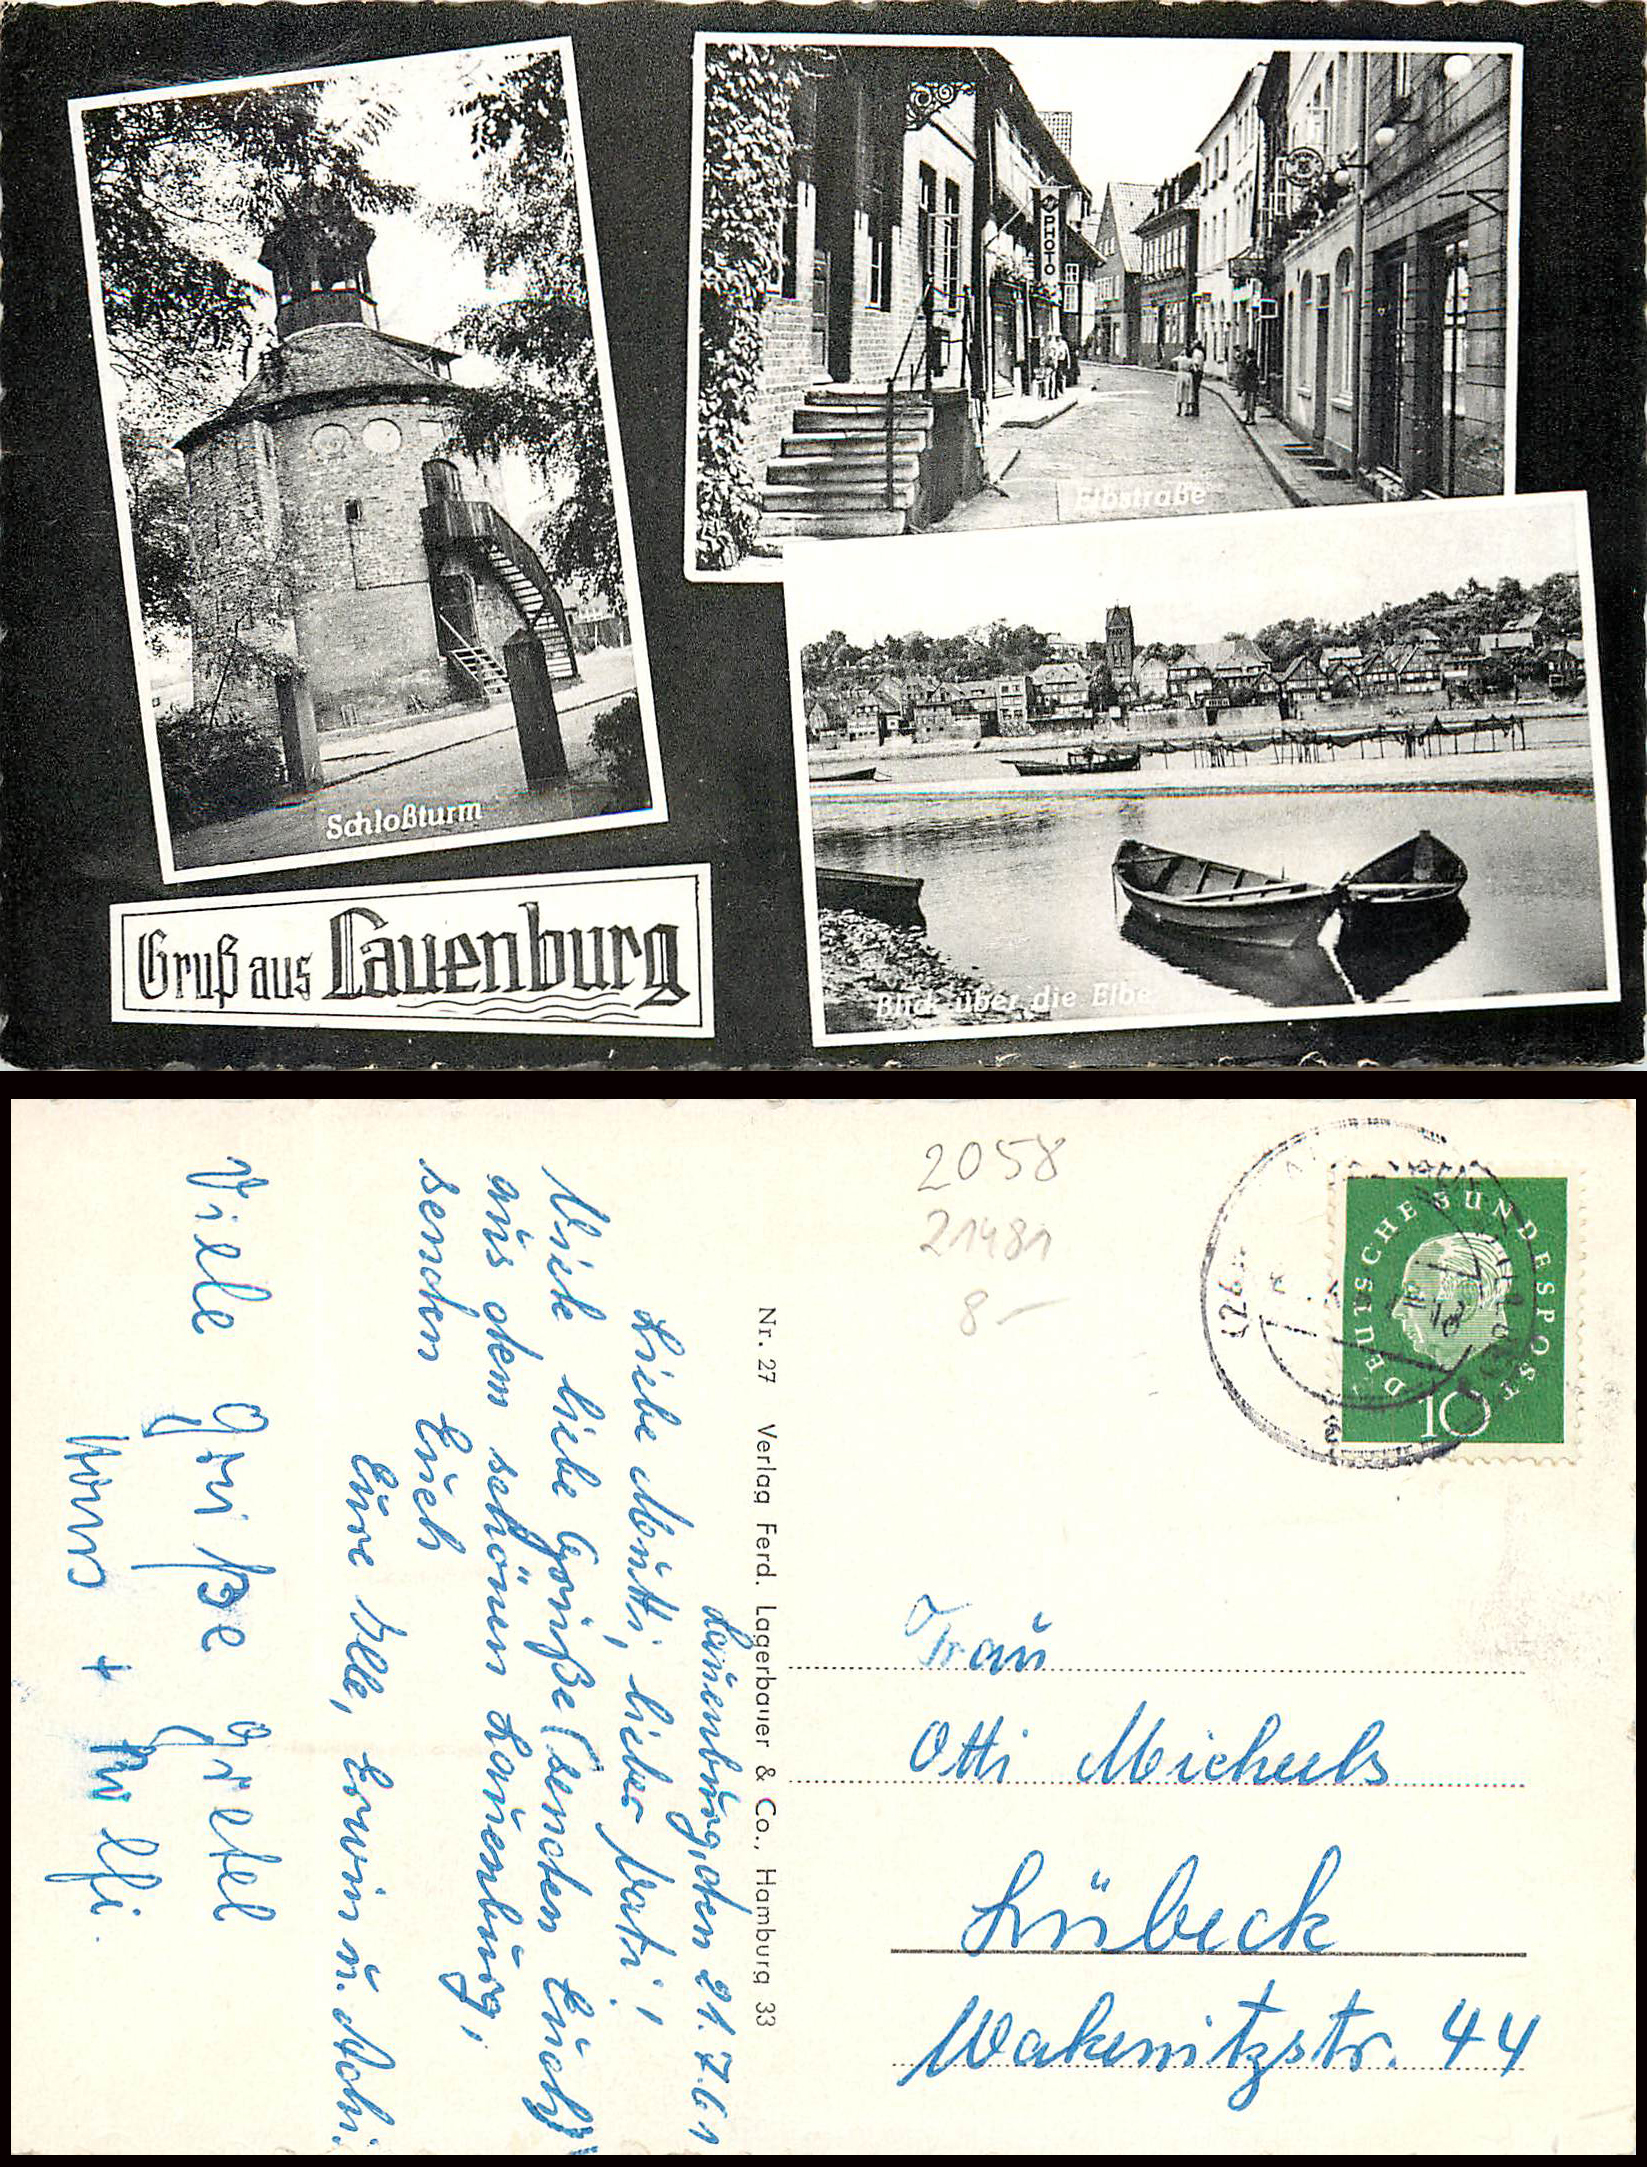 PHOTO
Elbstraße
Schloßturm
Blick über die Elbe
Gruß aus Lauenburg
2058
21481
8-
DEUTSCHE BUNDESPOST
10
Nr. 27 Verlag Ferd. Lagerbauer & Co., Hamburg 33
Lauenburg, den 21.7.61
Liebe Mutti, lieber Vati!
Viele liebe Grüße (senden Euch)
aus dem schönen Lauenburg,
senden Euch
Eure Elle, Erwin u. Achi
Viele Grüße Gretel
Hans + Rolfi.
Frau
Otti Michels
Lübeck
Wakenitzstr. 44